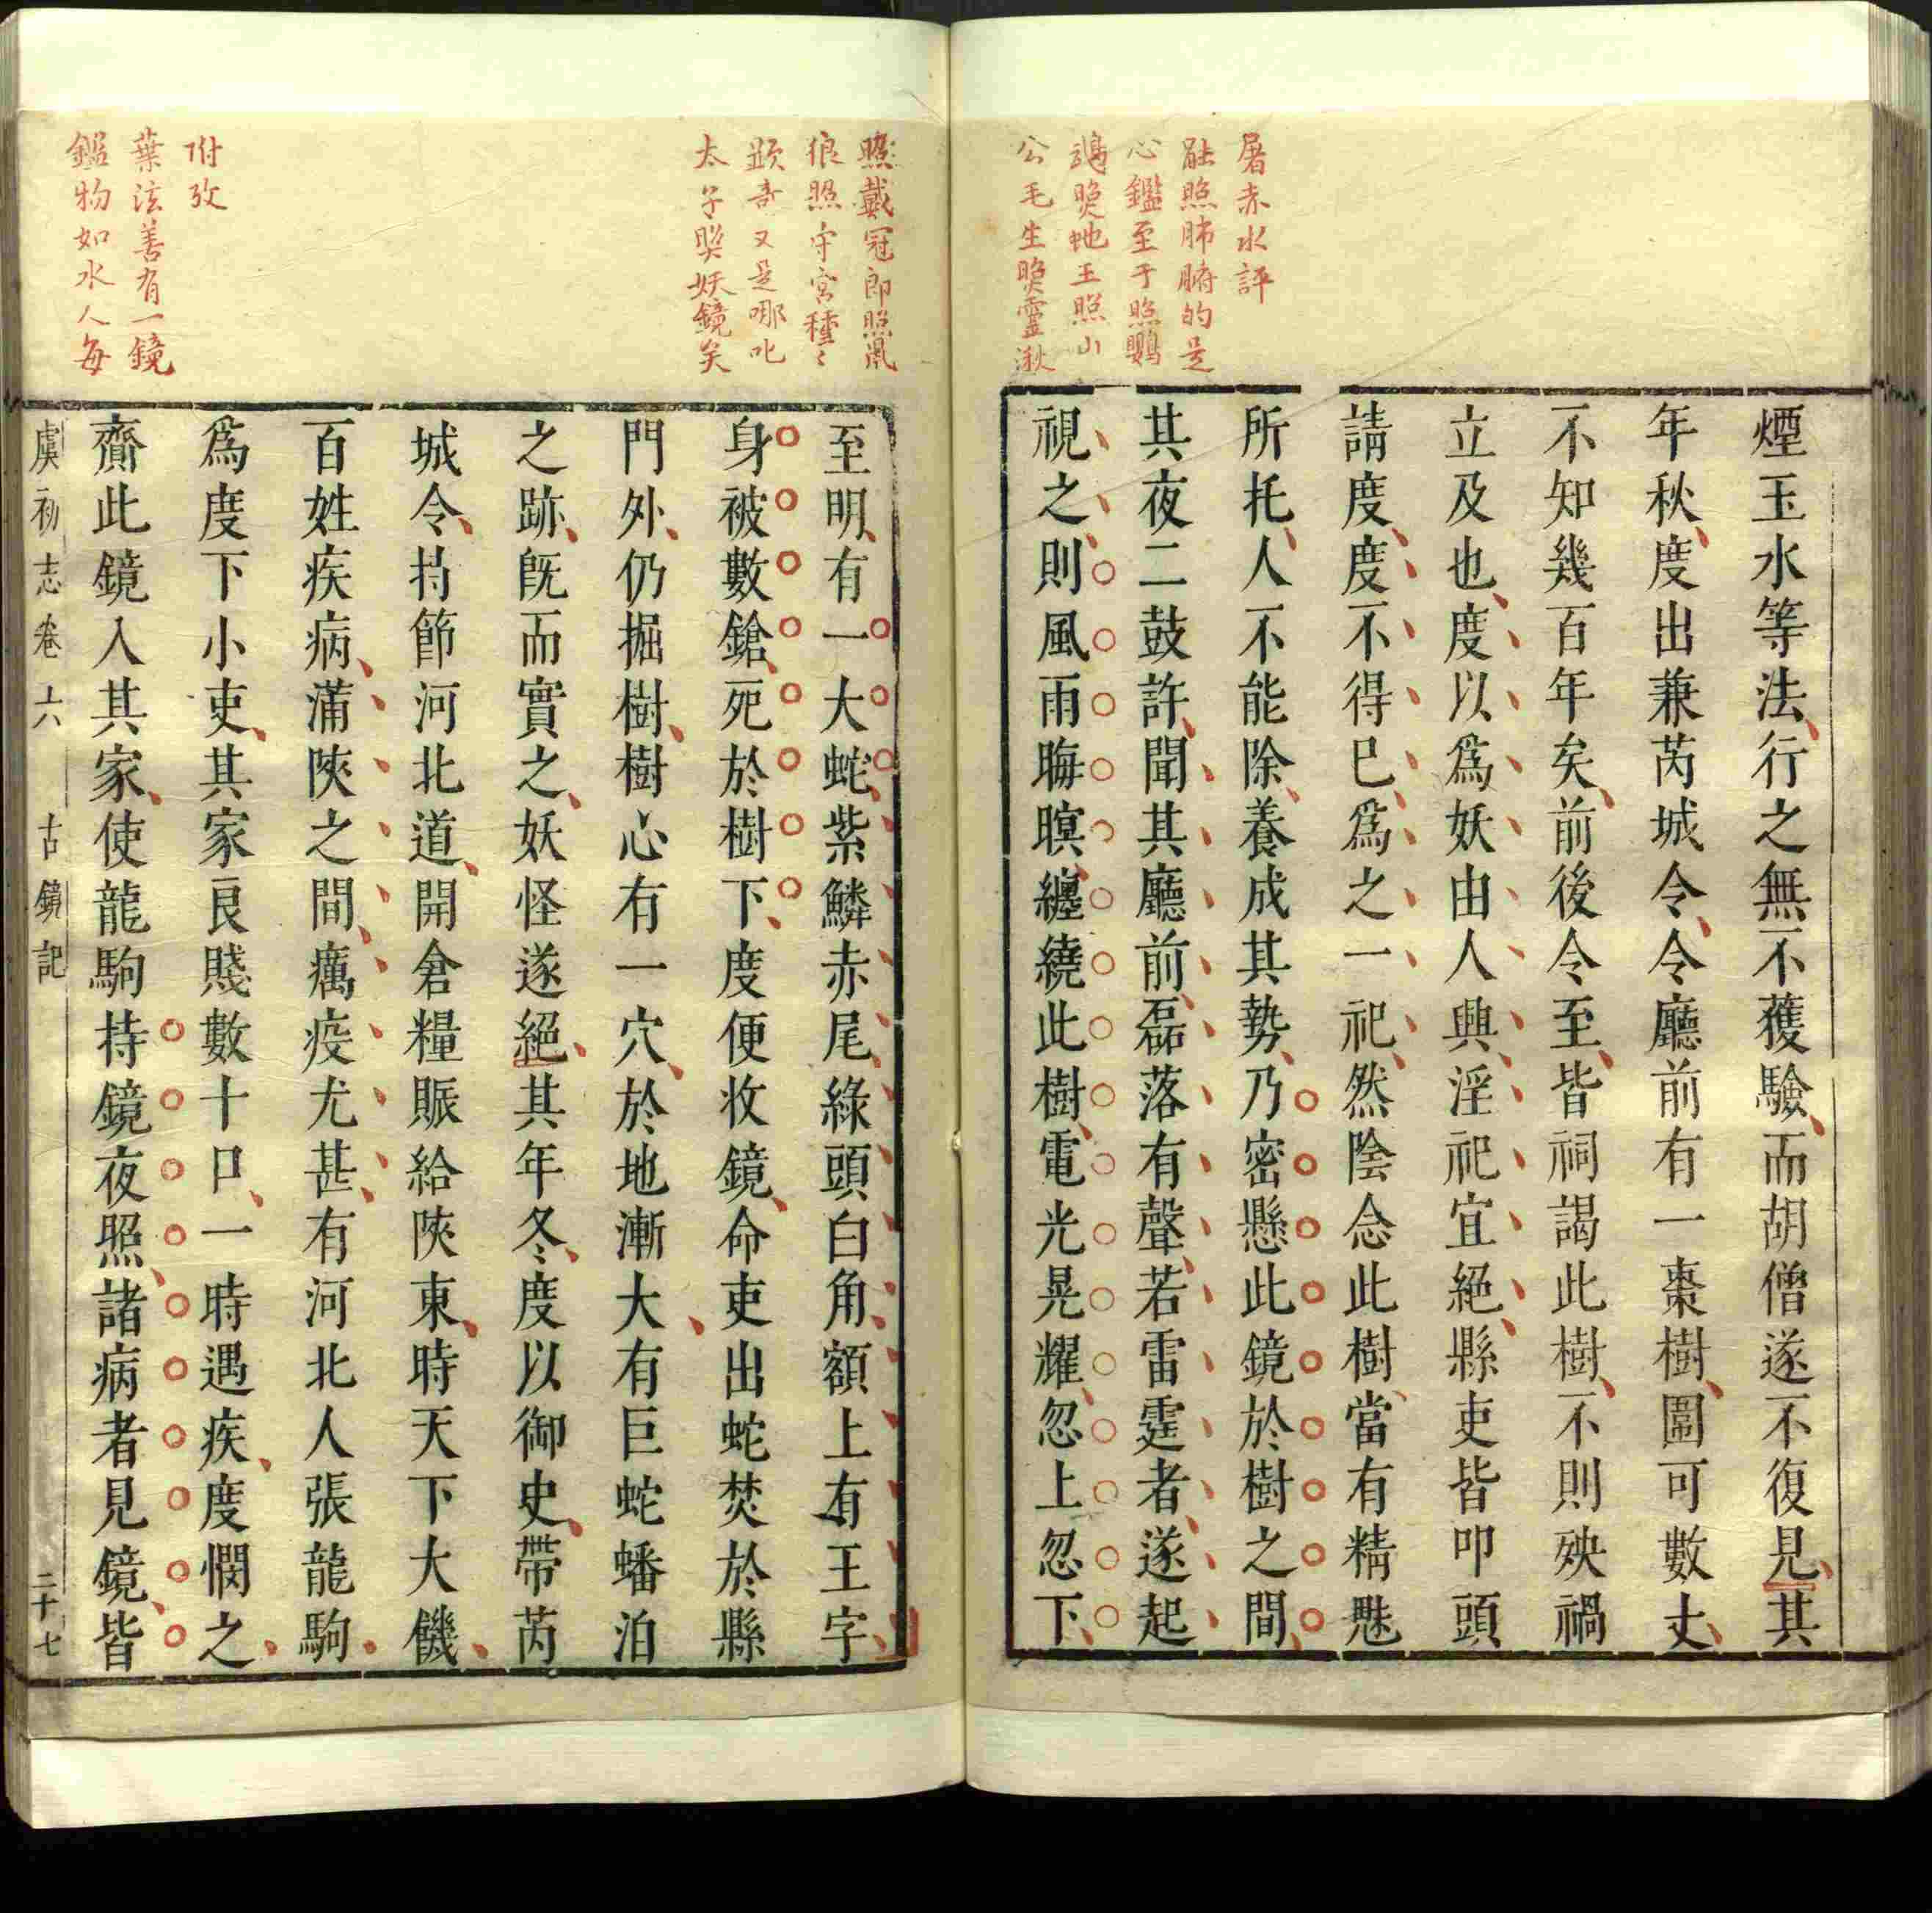 屠赤水評
能照肺腑的是
心鑑至于照鸚
鵡照虵王照小
公毛生照靈湫
煙玉水等法行之無不獲驗而胡僧遂不復見其
年秋度出兼芮城令令廳前有一棗樹圍可數丈
不知幾百年矣前後令至皆祠謁此樹不則殃禍
立及也度以為妖由人興淫祀宜絕縣吏皆叩頭
請度度不得已為之一祀然陰念此樹當有精魅
所托人不能除養成其勢乃密懸此鏡於樹之間
其夜二鼓許聞其廳前磊落有聲若雷霆者遂起
視之則風雨晦暝纏繞此樹電光晃耀忽上忽下
照戴冠郎照鼠
狼照守宮種〻
顯奇又是哪叱
太子照妖鏡矣
附攷
葉法善有一鏡
鑑物如水人每
至明有一大蛇紫鱗赤尾綠頭白角額上有王字
身被數鎗死於樹下度便收鏡命吏出蛇焚於縣
門外仍掘樹樹心有一穴於地漸大有巨蛇蟠泊
之跡既而實之妖怪遂絕其年冬度以御史帶芮
城令持節河北道開倉糧賑給陝東時天下大饑
百姓疾病蒲陝之間癘疫尤甚有河北人張龍駒
為度下小吏其家良賤數十口一時遇疾度憫之
齎此鏡入其家使龍駒持鏡夜照諸病者見鏡皆
虞初志卷六 古鏡記 二十七